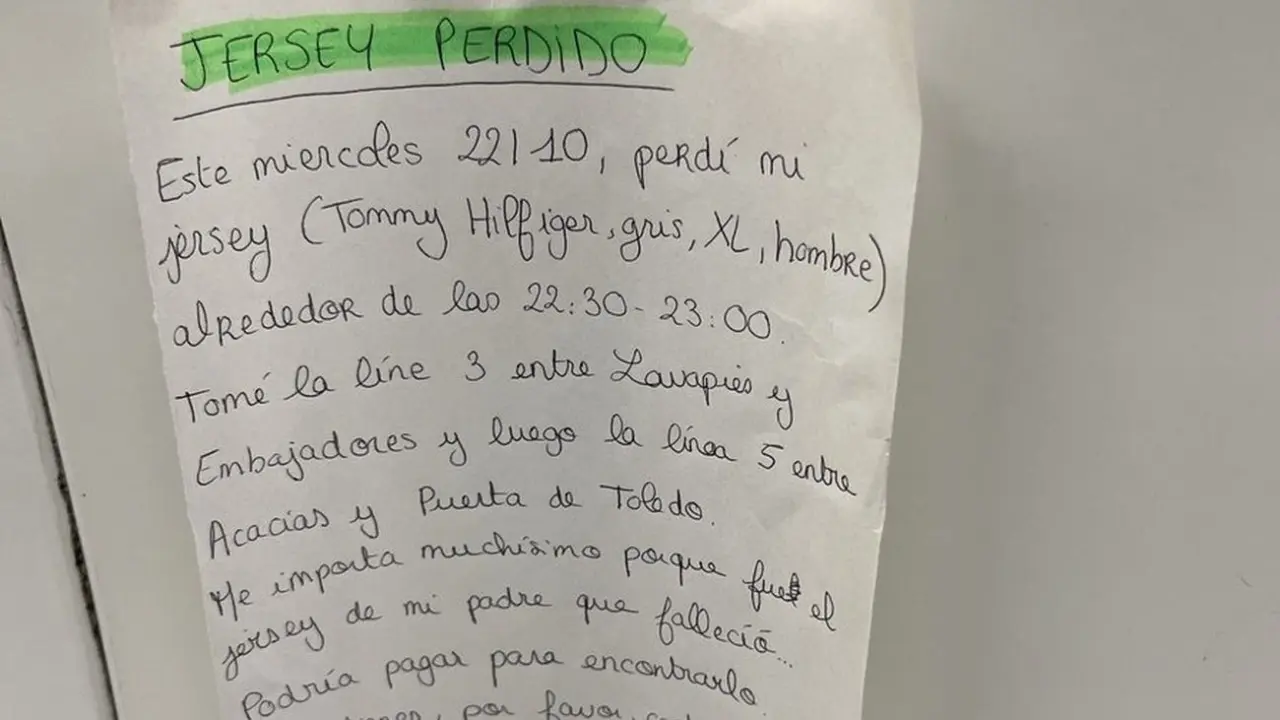 JERSEY PERDIDO
Este miercoles 22/10, perdí mi
jersey (Tommy Hilfiger, gris, XL, hombre)
alrededor de las 22:30-23:00.
Tomé la líne 3 entre Lavapiés y
Embajadores y luego la línea 5 entre
Acacias y Puerta de Toledo.
Me importa muchísimo porque fue el
jersey de mi padre que falleció...
Podría pagar para encontrarlo
por favor,